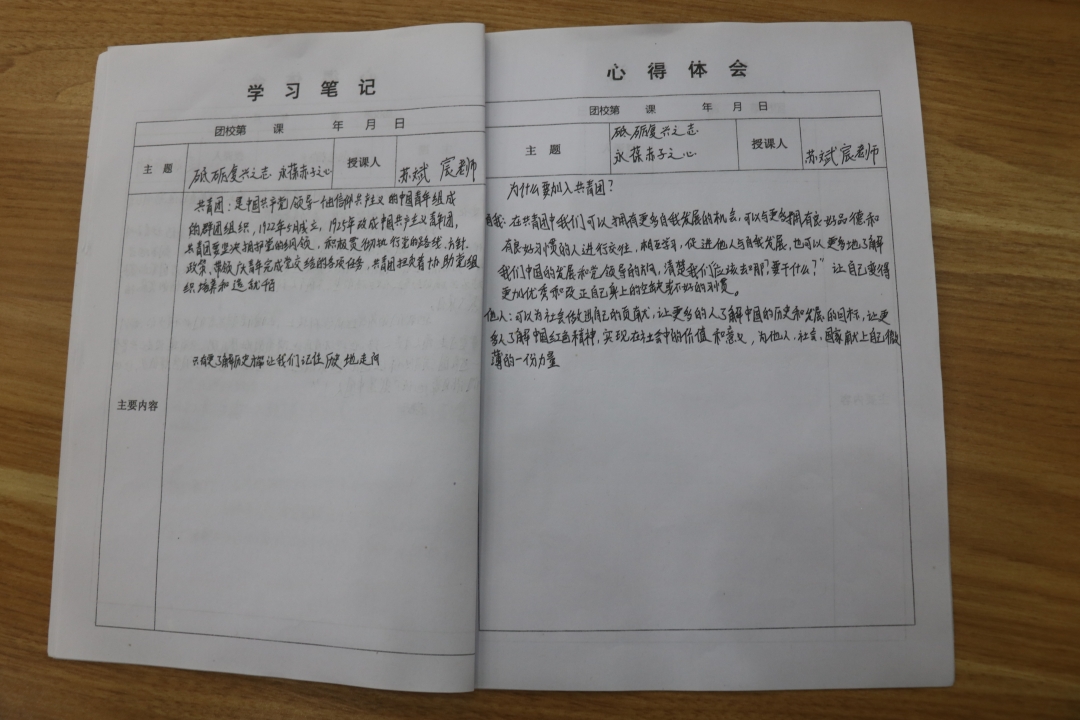 学习笔记
团校第 课 年 月 日
主 题
砥砺复兴之志 永葆赤子之心
授课人
苏斌宸老师
主要内容
共青团：是中国共产党领导一个信仰共产主义的中国青年组成
的群团组织，1922年5月成立，1925年改成中国共产主义青年团，
共青团要坚决拥护党的纲领，积极贯彻执行党的路线、方针、
政策，带领广大青年完成党交给的各项任务，共青团担负着协助党组
织培养和造就
只有更了解历史才能让我们记住历史地走向
心得体会
团校第 课 年 月 日
主 题
砥砺复兴之志
永葆赤子之心
授课人
苏斌宸老师
为什么要加入共青团？
自我：在共青团中我们可以拥有更多自我发展的机会，可以与更多拥有良好品德和
有良好习惯的人进行交往，相互学习，促进他人与自我发展，也可以更多地了解
我们中国的发展和党领导的知识，清楚我们“应该去哪？要干什么？”让自己变得
更加优秀和改正自己身上的空缺和不好的习惯。
他人：可以为社会做出自己的贡献，让更多的人了解中国的历史和发展的目标，让更
多人了解中国红色精神，实现在社会中的价值和意义，为他人、社会、国家献上自己微
薄的一份力量